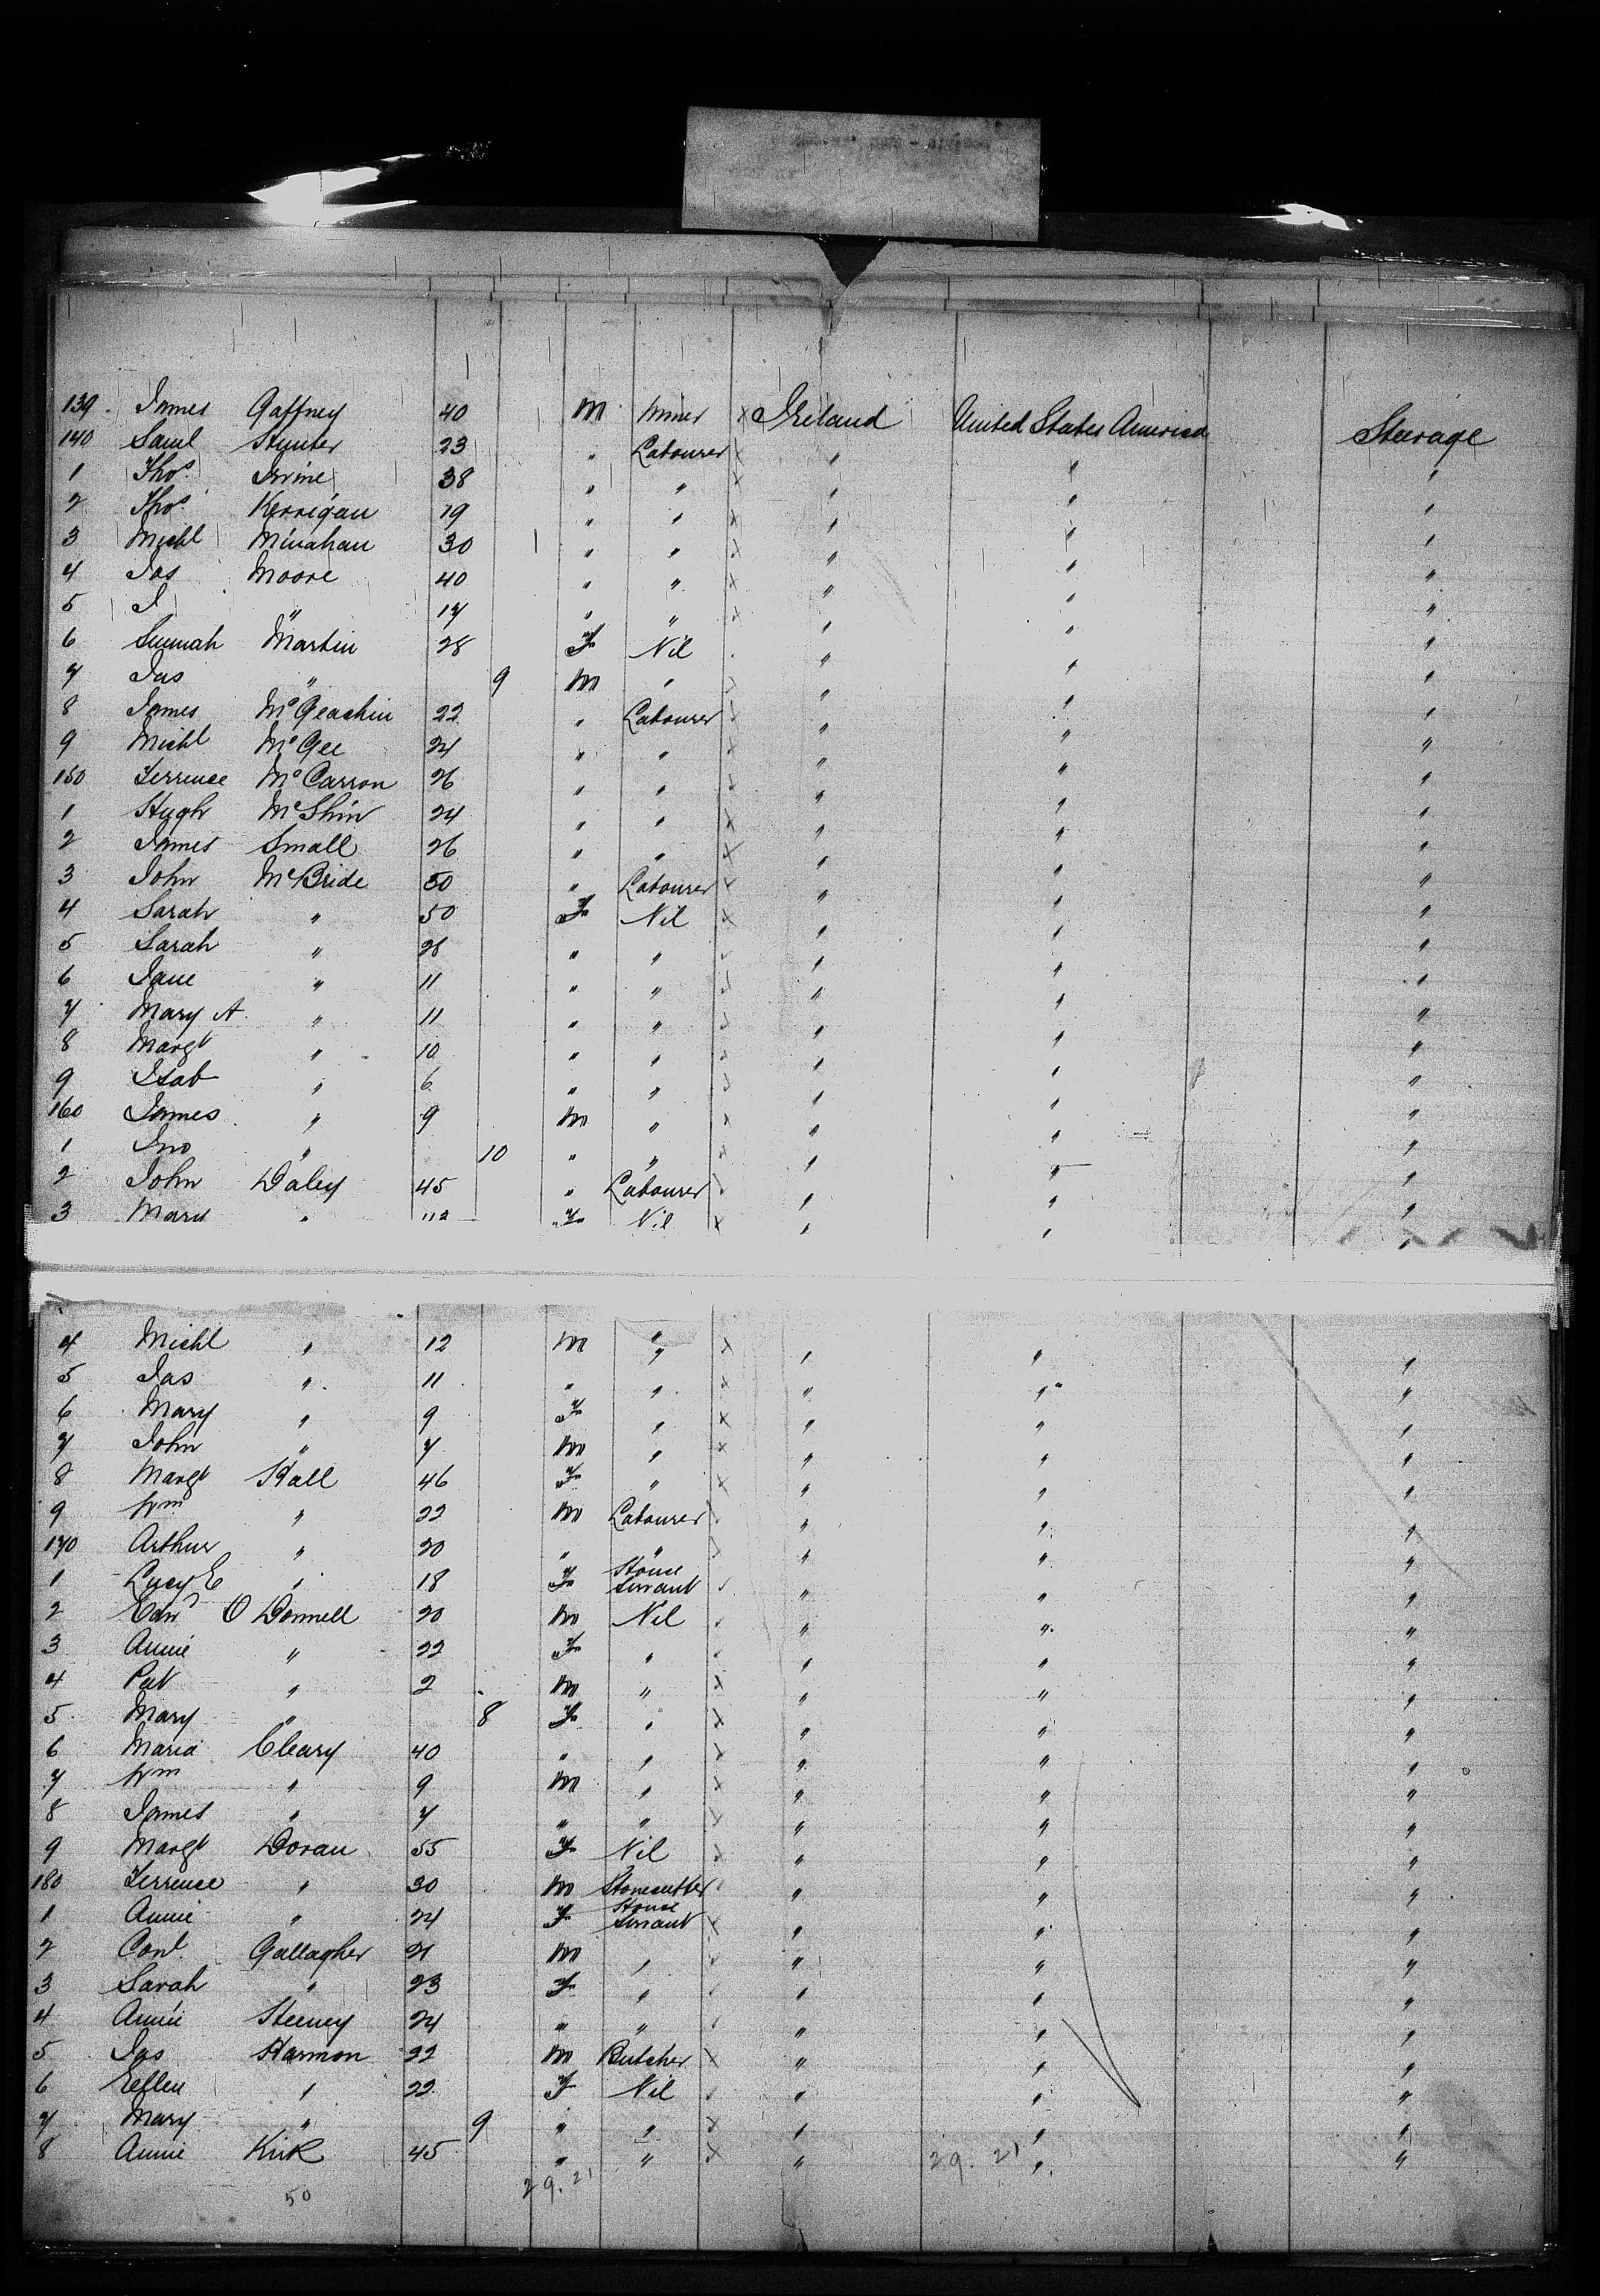 139. James Gaffney 40 M Miner x Ireland United States America Steerage
140 Saml Hunter 23 " Labourer x " " "
1 Thos. Irvine 38 " " x " " "
2 Thos. Kerrigan 19 " " x " " "
3 Michl Minahan 30 " " x " " "
4 Jas Moore 40 " " x " " "
5 J " 17 " " x " " "
6 Martin 28 F Nil " " "
7 Jas " 9 M " " " "
8 James McGeachin 22 " Labourer " " "
9 Michl McGee 24 " " x " " "
150 Terrence McCarron 26 " " " " "
1 Hugh McShin 24 " " x " " "
2 James Small 26 " " x " " "
3 John McBride 50 " Labourer x " " "
4 Sarah " 50 F Nil x " " "
5 Sarah " 28 " " " " "
6 Jane " 11 " " " " "
7 Mary A. " 11 " " " " "
8 Margt " 10 " " " " "
9 Isab " 6 " " " " "
160 James " 9 M " x " " "
1 Jno " 10 " " x " " "
2 John Daley 45 " Labourer " " "
3 Mary " F Nil x " " "
4 Michl " 12 M " x " " "
5 Jas " 11 " " x " " "
6 Mary " 9 F " x " " "
7 John " 7 M " x " " "
8 Margt Hall 46 F " x " " "
9 Wm " 22 M Labourer " " "
170 Arthur " 20 " " " " "
1 Lucy E " 18 F House Servant " " "
2 Edwd O Donnell 20 M Nil " " "
3 Annie " 22 F " " " "
4 Pat " 2 M " x " " "
5 Mary " 8 F " x " " "
6 Maria Cleary 40 " " x " " "
7 Wm " 9 M " x " " "
8 James " 7 " " x " " "
9 Margt Doran 55 F Nil x " " "
180 Terrence " 30 M Stonecutter " " "
1 Annie " 24 F House Servant x " " "
2 Conl. Gallagher 21 M " " " "
3 Sarah " 23 F " " " "
4 Annie Heeney 24 " " " " "
5 Jas Harmon 22 M Butcher x " " "
6 Ellen " 22 F Nil " " "
7 Mary " 9 " " x " " "
8 Annie Kirk 45 " " x " " "
50 29.21 29.21